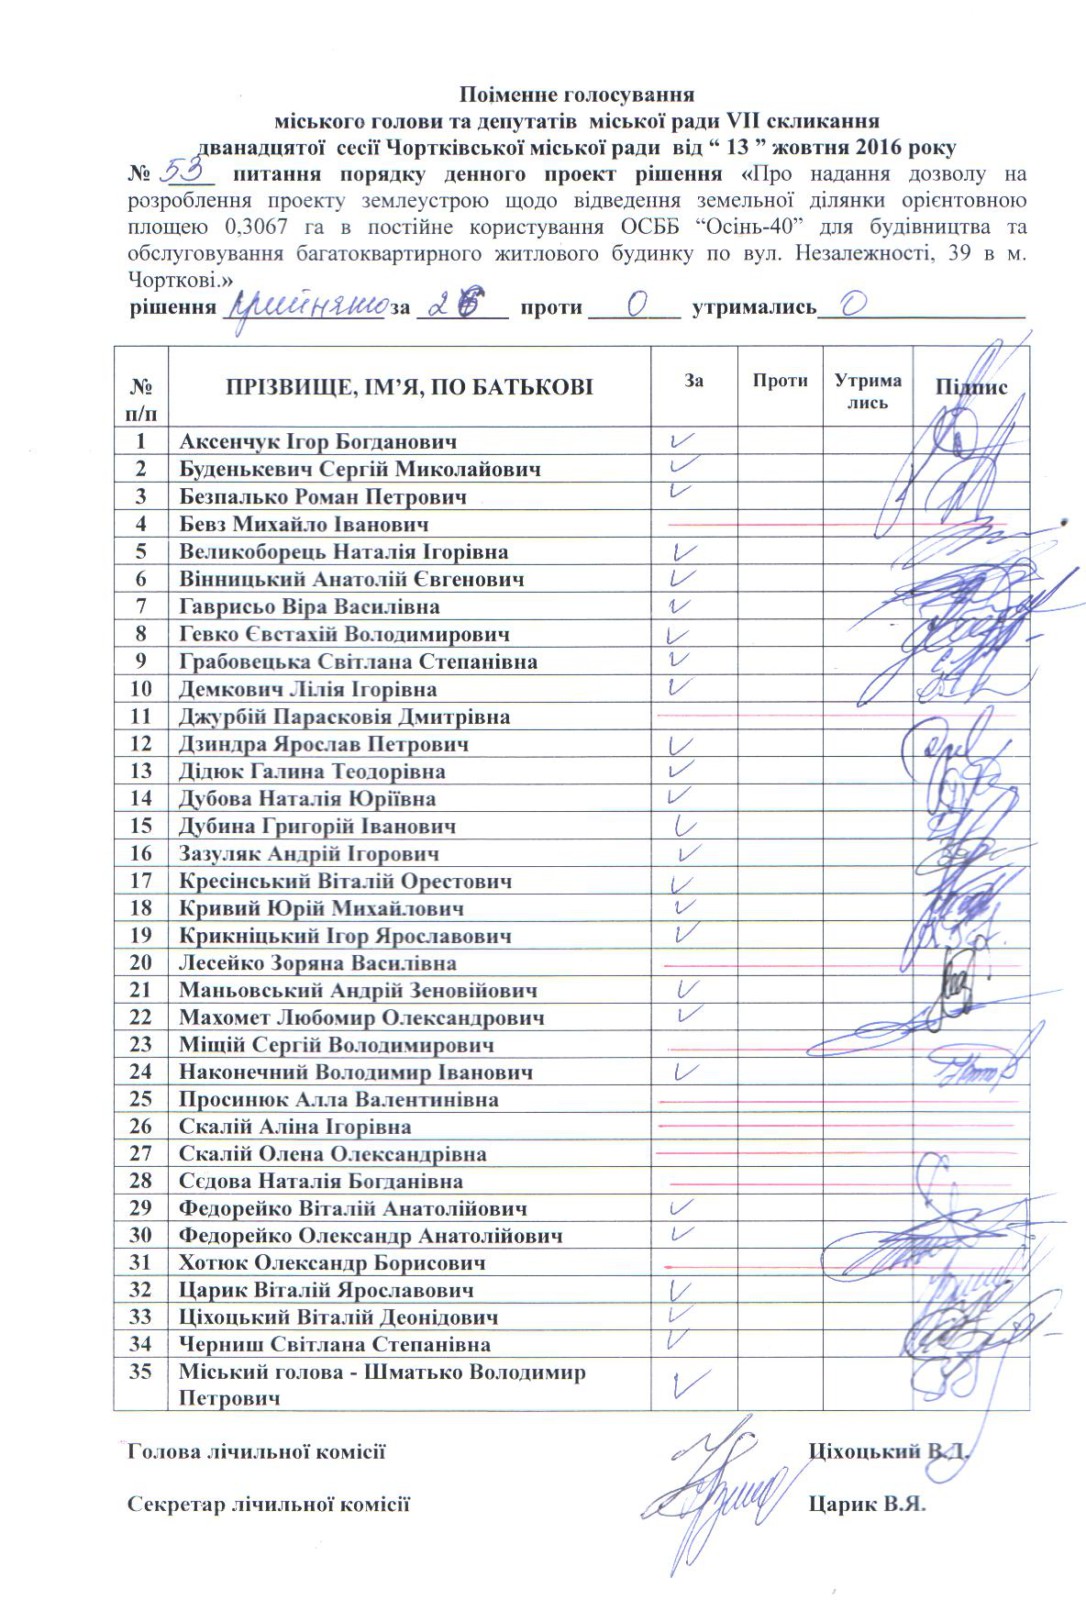 Поіменне голосування
міського голови та депутатів міської ради VII скликання
дванадцятої сесії Чортківської міської ради від “ 13 ” жовтня 2016 року
№ 53 питання порядку денного проект рішення «Про надання дозволу на
розроблення проекту землеустрою щодо відведення земельної ділянки орієнтовною
площею 0,3067 га в постійне користування ОСББ “Осінь-40” для будівництва та
обслуговування багатоквартирного житлового будинку по вул. Незалежності, 39 в м.
Чорткові.»
рішення прийнято за 26 проти 0 утримались 0
№ п/п ПРІЗВИЩЕ, ІМ’Я, ПО БАТЬКОВІ За Проти Утрима лись Підпис
1 Аксенчук Ігор Богданович
2 Буденькевич Сергій Миколайович
3 Безпалько Роман Петрович
4 Бевз Михайло Іванович
5 Великоборець Наталія Ігорівна
6 Вінницький Анатолій Євгенович
7 Гаврисьо Віра Василівна
8 Гевко Євстахій Володимирович
9 Грабовецька Світлана Степанівна
10 Демкович Лілія Ігорівна
11 Джурбій Парасковія Дмитрівна
12 Дзиндра Ярослав Петрович
13 Дідюк Галина Теодорівна
14 Дубова Наталія Юріївна
15 Дубина Григорій Іванович
16 Зазуляк Андрій Ігорович
17 Кресінський Віталій Орестович
18 Кривий Юрій Михайлович
19 Крикніцький Ігор Ярославович
20 Лесейко Зоряна Василівна
21 Маньовський Андрій Зеновійович
22 Махомет Любомир Олександрович
23 Міщій Сергій Володимирович
24 Наконечний Володимир Іванович
25 Просинюк Алла Валентинівна
26 Скалій Аліна Ігорівна
27 Скалій Олена Олександрівна
28 Сєдова Наталія Богданівна
29 Федорейко Віталій Анатолійович
30 Федорейко Олександр Анатолійович
31 Хотюк Олександр Борисович
32 Царик Віталій Ярославович
33 Ціхоцький Віталій Деонідович
34 Черниш Світлана Степанівна
35 Міський голова - Шматько Володимир
Петрович
Голова лічильної комісії Ціхоцький В.Д.
Секретар лічильної комісії Царик В.Я.